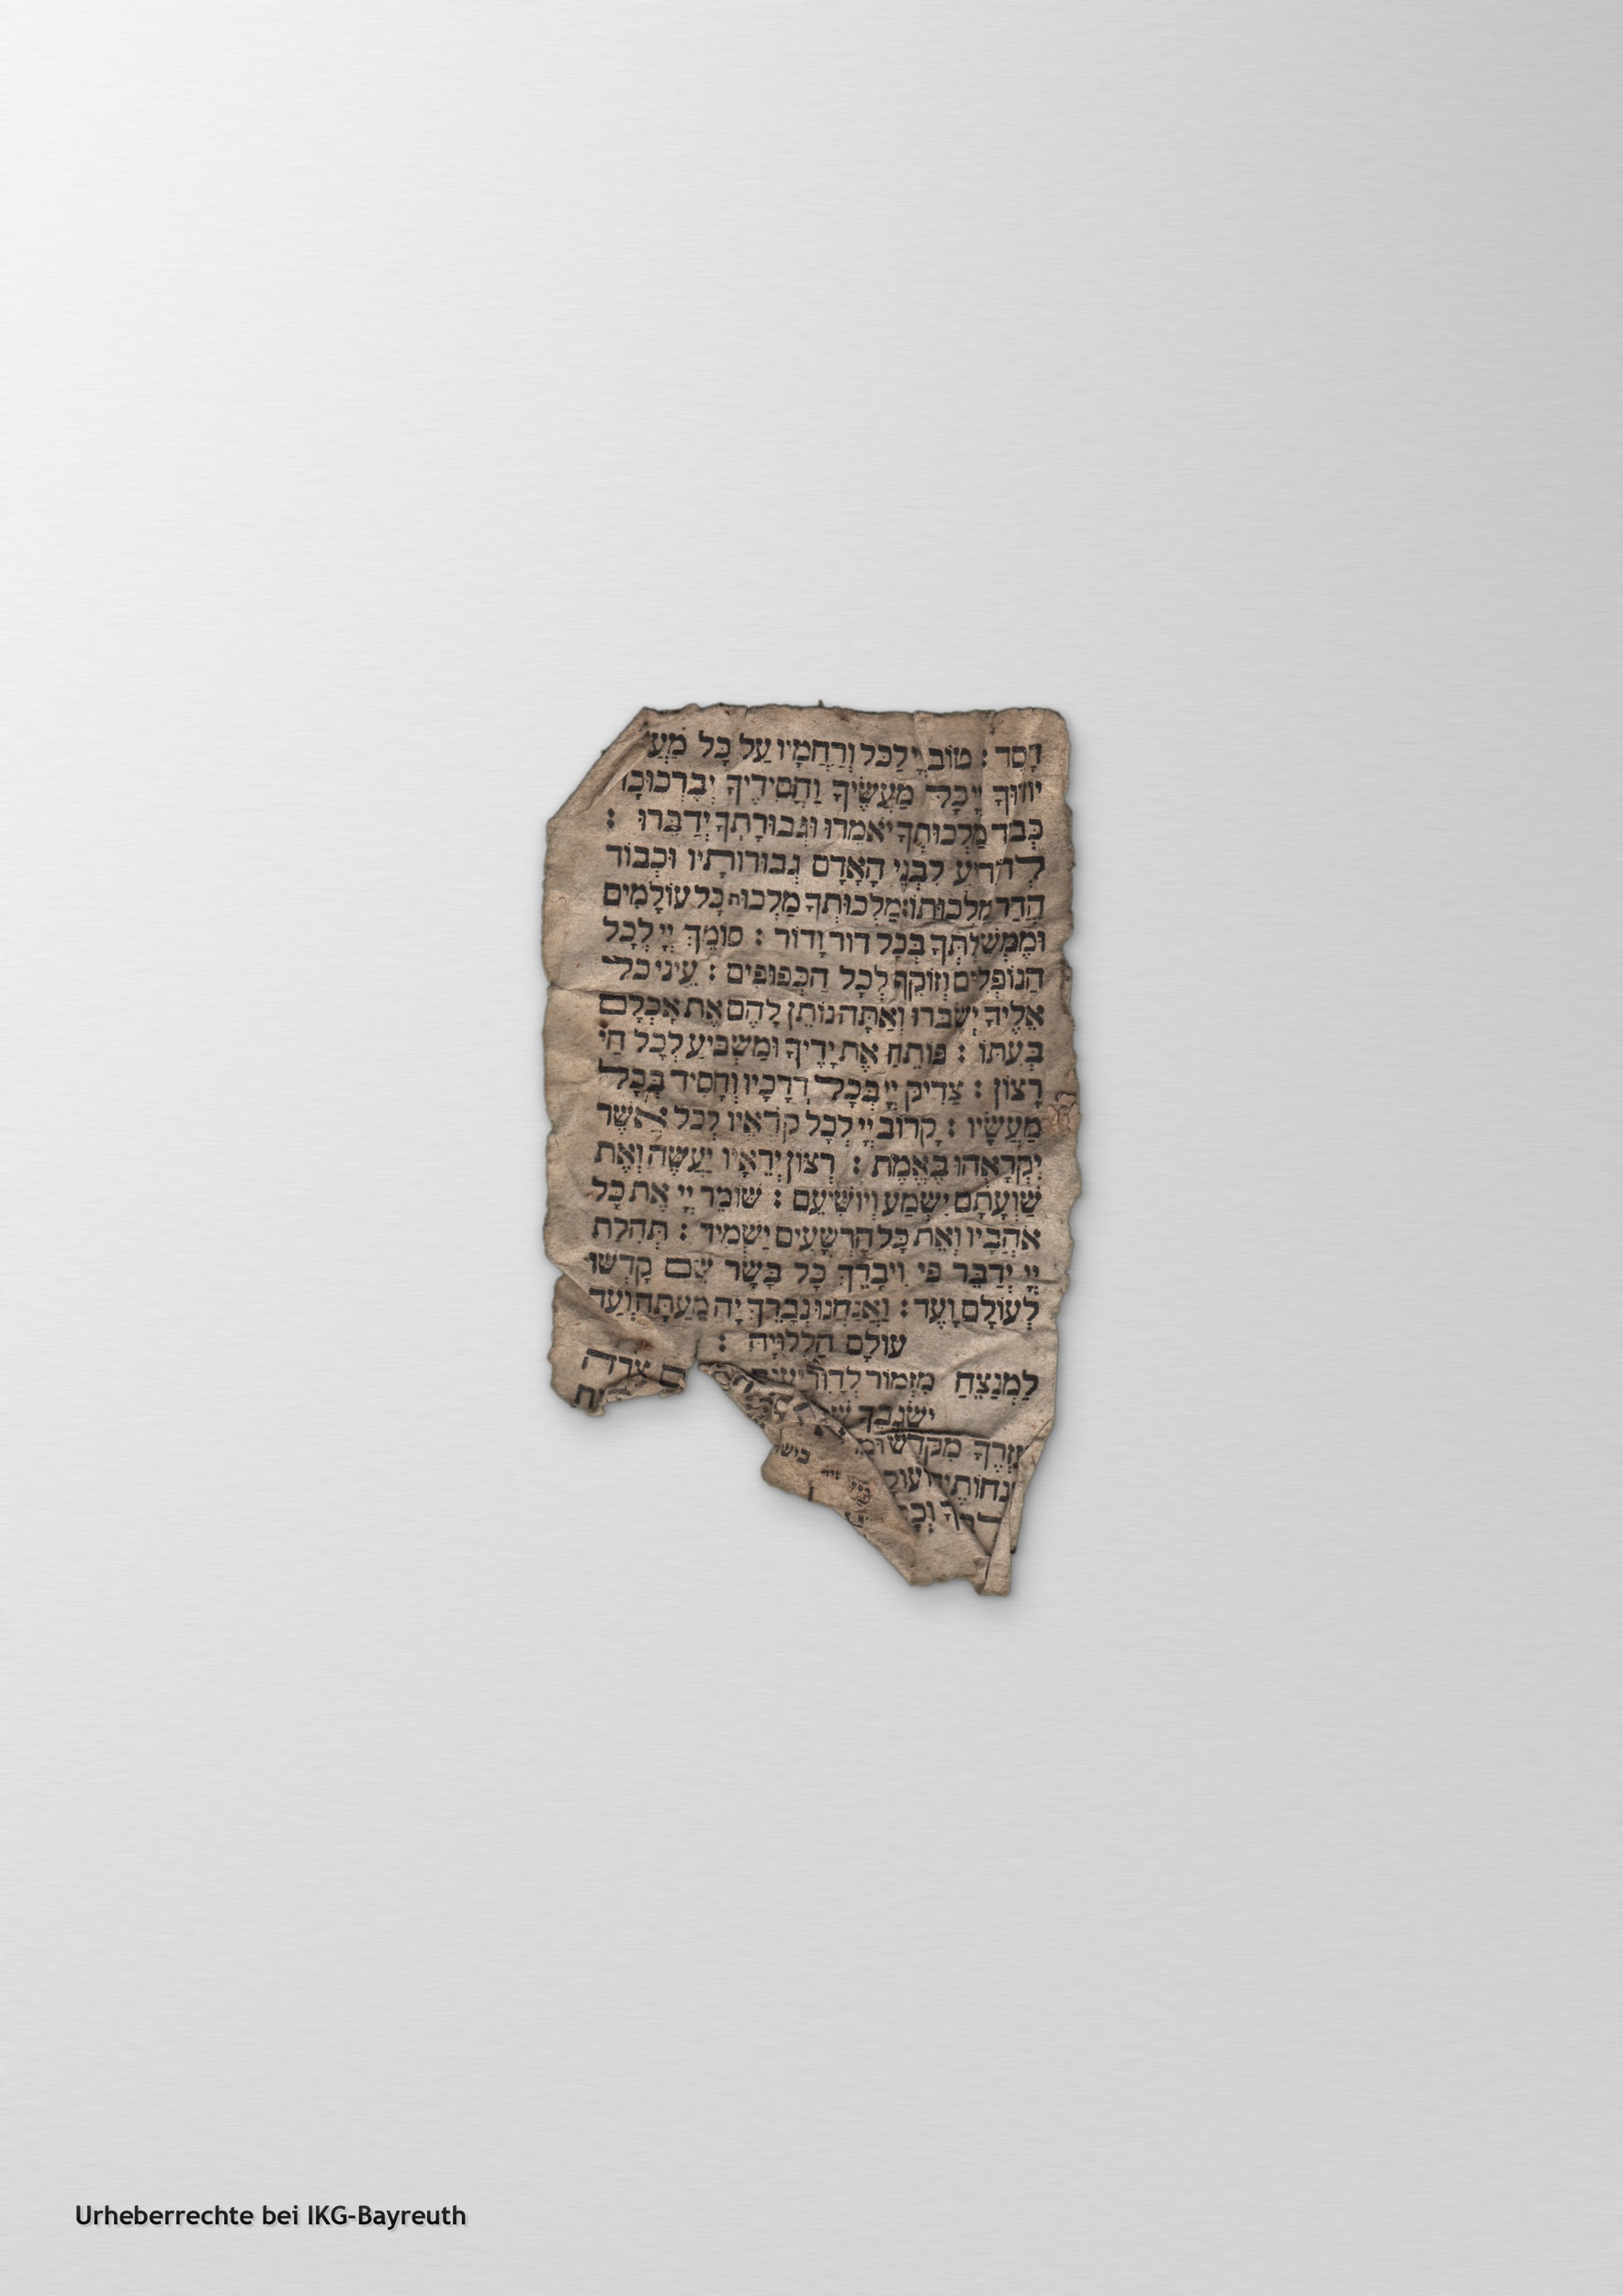 חָסֶד : טוֹב יְיָ לַכֹּל וְרַחֲמָיו עַל כָּל מַעֲ
יוֹדוּךָ יְיָ כָּל מַעֲשֶׂיךָ וַחֲסִידֶיךָ יְבָרְכוּכָה
כְּבוֹד מַלְכוּתְךָ יֹאמֵרוּ וּגְבוּרָתְךָ יְדַבֵּרוּ :
לְהוֹדִיעַ לִבְנֵי הָאָדָם גְבוּרוֹתָיו וּכְבוֹד
הֲדַר מַלְכוּתוֹ : מַלְכוּתְךָ מַלְכוּת כָּל עוֹלָמִים
וּמֶמְשַׁלְתְּךָ בְּכָל דוֹר וָדוֹר : סוֹמֵךְ יְיָ לְכָל
הַנּוֹפְלִים וְזוֹקֵף לְכָל הַכְּפוּפִים : עֵינֵי כֹל
אֵלֶיךָ יְשַׂבֵּרוּ וְאַתָּה נוֹתֵן לָהֶם אֶת אָכְלָם
בְּעִתּוֹ : פּוֹתֵחַ אֶת יָדֶיךָ וּמַשְׂבִּיעַ לְכָל חַי
רָצוֹן : צַדִּיק יְיָ בְּכָל דְּרָכָיו וְחָסִיד בְּכָל
מַעֲשָׂיו : קָרוֹב יְיָ לְכָל קוֹרְאָיו לְכֹל אֲשֶׁר
יִקְרָאֻהוּ בֶאֱמֶת : רְצוֹן יְרֵאָיו יַעֲשֶׂה וְאֶת
שַׁוְעָתָם יִשְׁמַע וְיוֹשִׁיעֵם : שׁוֹמֵר יְיָ אֶת כָּל
אֹהֲבָיו וְאֵת כָּל הָרְשָׁעִים יַשְׁמִיד : תְּהִלַּת
יְיָ יְדַבֵּר פִּי וִיבָרֵךְ כָּל בָּשָׂר שֵׁם קָדְשׁוֹ
לְעוֹלָם וָעֶד : וַאֲנַחְנוּ נְבָרֵךְ יָהּ מֵעַתָּה וְעַד
עוֹלָם הַלְלוּיָהּ :
לַמְנַצֵּחַ מִזְמוֹר לְדָוִד צרה
יְשַׂגֶּבְךָ
עֶזְרְךָ מִקֹּדֶשׁ
Urheberrechte bei IKG-Bayreuth